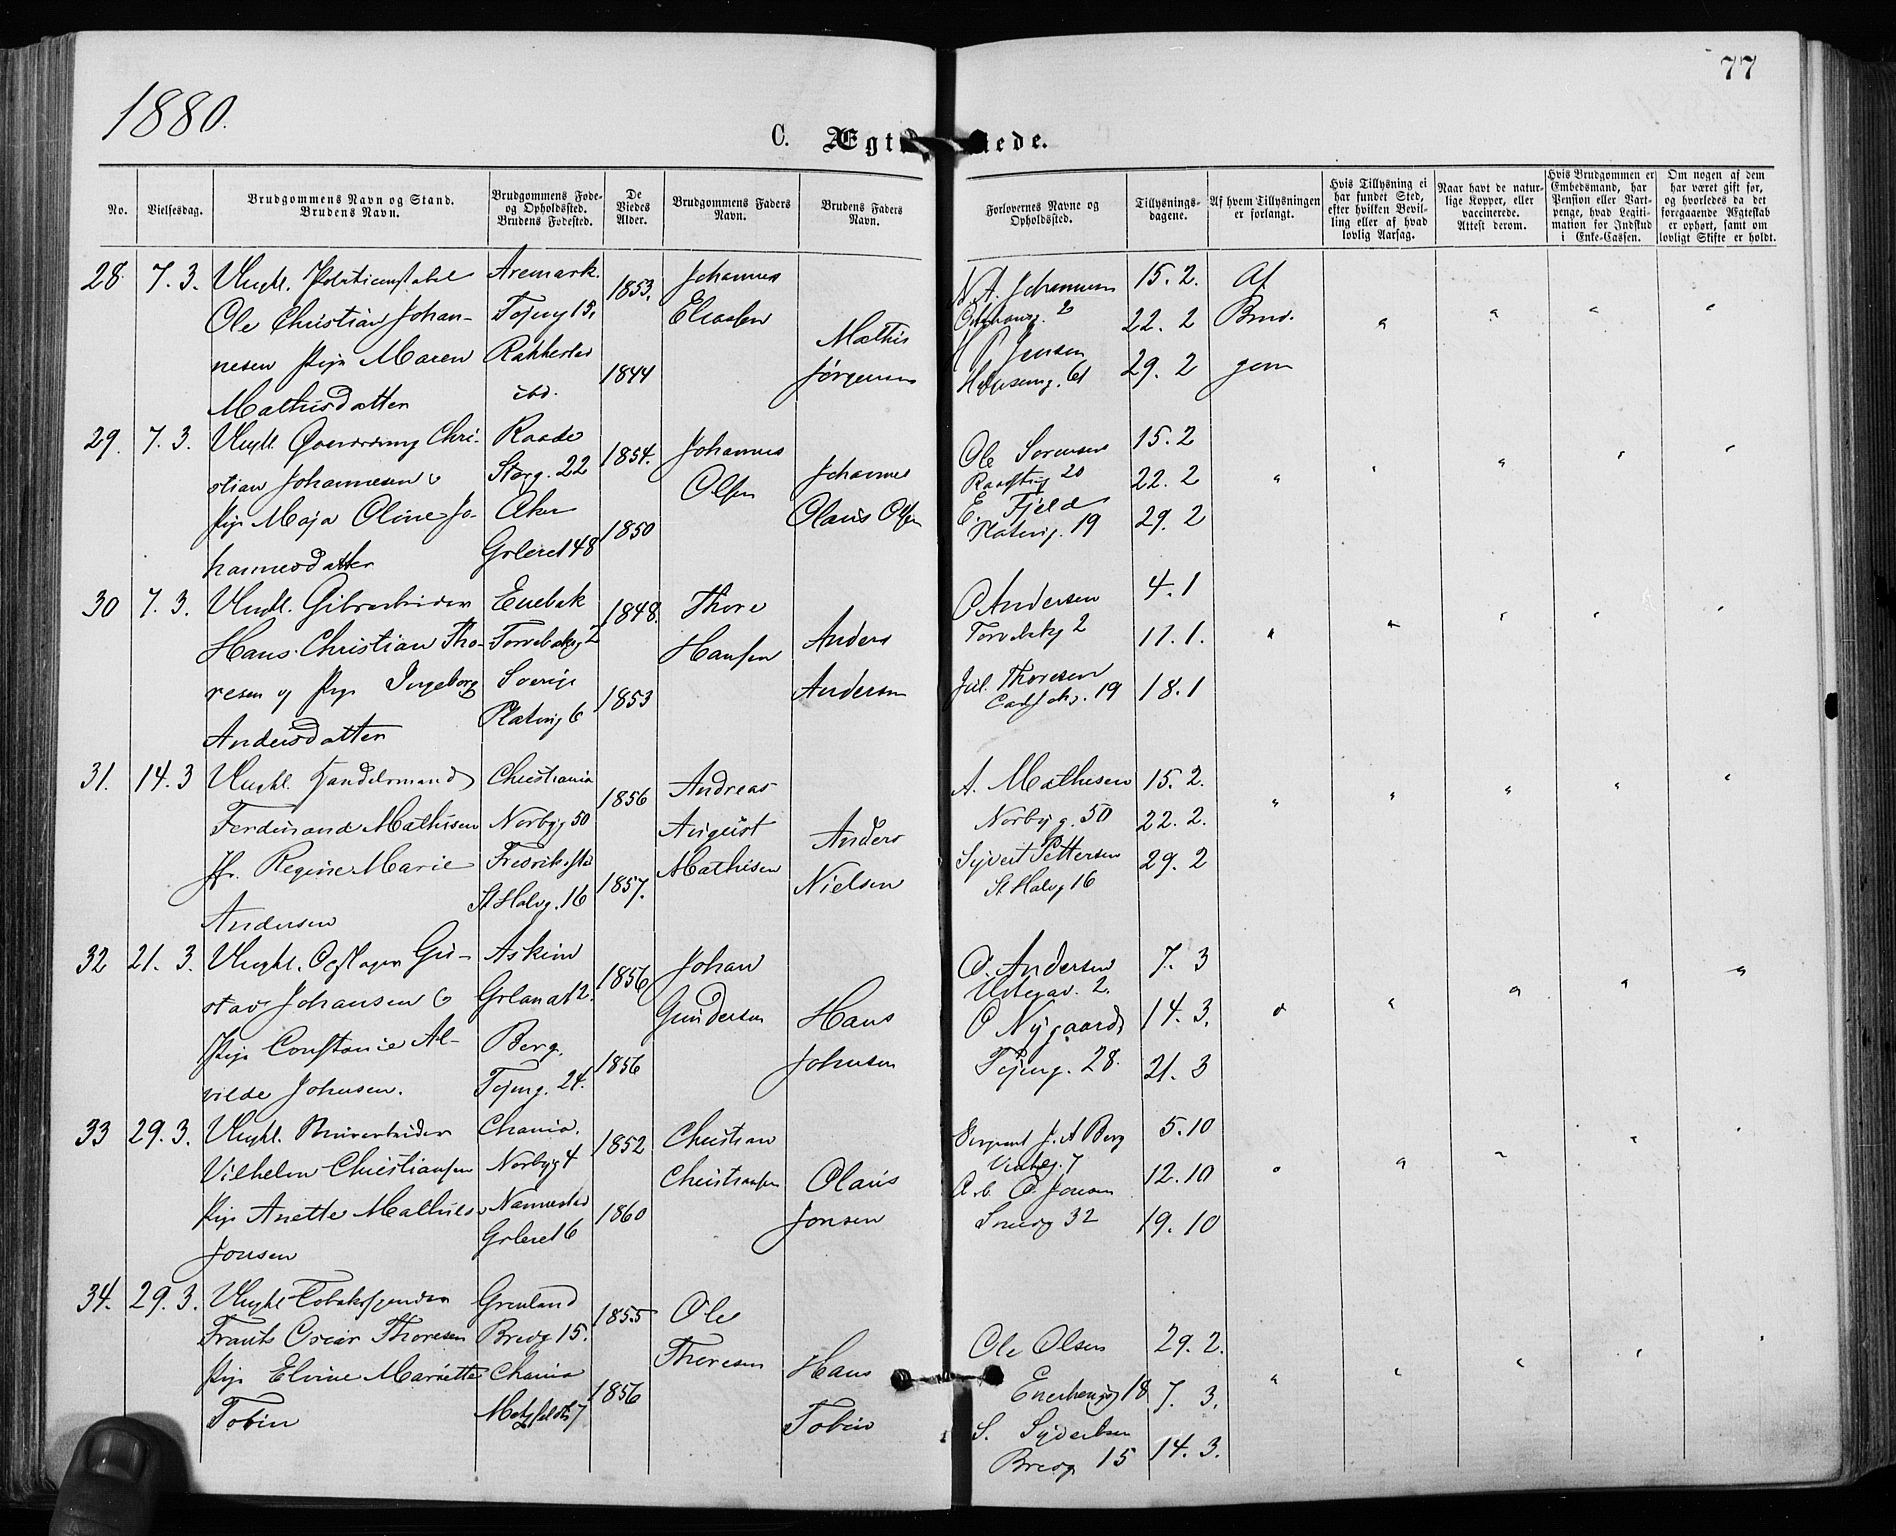 77
1880.
C. Ægt iede.
No.
Vielsesdag.
Brudgommens Navn og Stand.
Brudens Navn.
Brudgommens Føde-
og Opholdssted.
Brudens Fødested.
De
Viedes
Alder.
Brudgommens Faders
Navn.
Brudens Faders
Navn.
Forlovernes Navne og
Opholdssted.
Tillysnings-
dagene.
Af hvem Tillysningen
er forlangt.
Hvis Tillysning ei
har fundet Sted,
efter hvilken Bevil-
ling eller af hvad
lovlig Aarsag.
Naar havt de natur-
lige Kopper, eller
vaccinerede.
Attest derom.
Hvis Brudgommen er
Embedsmand, har
Pension eller Vart-
penge, hvad Legiti-
mation for Indskud
i Enke-Cassen.
Om nogen af dem
har været gift før,
og hvorledes da det
foregaaende Ægteskab
er ophørt, samt om
lovligt Skifte er holdt.
28 7. 3. Ungkl. Politiconstabel Aremark 1853. Johannes
Ole Christian Johan- Tøjeng 15. Eliassen
nesen Pige Maren Rakkestad 1844 Mathis
Mathisdatter ibd. Jørgensen
N A. Johannesen 15. 2. Af
22. 2 Brud-
H P Jensen 29. 2 gom
61
29. 7. 3. Ungkl. Chri- Raade 1854. Johannes
stian Johannesen o Storg. 22 Olsen Johannes
Pige Maja Oline Jo- Aker 1850 Olaus Olsen
hannesdatter Grleret 48
Ole Sorensen 15. 2
20 22. 2
E. Fjeld 29. 2
Platovg. 19
30 7. 3. Ungkl. Gibsarbeider Enebak 1848. Thore
Hans Christian Tho- Torvebakg 2 Hansen Anders
resen og Pige Ingeborg Sverige 1853 Andersen
Andersdatter Platovg 6
O Andersen 4. 1
Torvebakg 2 11. 1.
Jul. Thoresen 18. 1
Carl Johs. 19
31. 14. 3 Ungkl. Handelsmand Christiania 1856 Andreas
Ferdinand Mathisen Norbyg 50 August Anders
Jfr. Regine Marie Fredrikstad 1857. Mathisen Nielsen
Andersen St Halvg. 16
A. Mathisen 15. 2.
Norbyg. 50 22. 2.
Syvert Pettersen 29. 2
St. Halvg 16
32 21. 3. Ungkl. Gu- Askim 1856 Johan
stav Johansen o Grland 12. Gundersen Hans
Pige Constance Al- Berg. 1856 Johnsen
vilde Johnsen. Tøjeng. 24.
O. Andersen 7. 3
2. 14. 3.
O Nygaard 21. 3
Tøjeng. 28.
33 29. 3. Ungkl. Murarbeider Chania. 1852 Christian
Vilhelm Christiansen Norbyg 4 Christiansen Olaus
Pige Anette Mathilde Nannestad 1860 Jonsen
Jonsen Grleret 6
Sergeant J. A Berg 5. 10
7 12. 10
O Jonsen 19. 10
32
34. 29. 3. Ungkl Tobakspinder Grenland 1855 Ole
Frants Oscar Thoresen Bredg 15. Thoresen Hans
Pige Elvine Mariette Chania 1856 Tobin
Tobin Metzeltsg 7
Ole Olsen 29. 2.
Enerhaugg 18 7. 3.
S. Syvertsen 14. 3.
Bredg 15